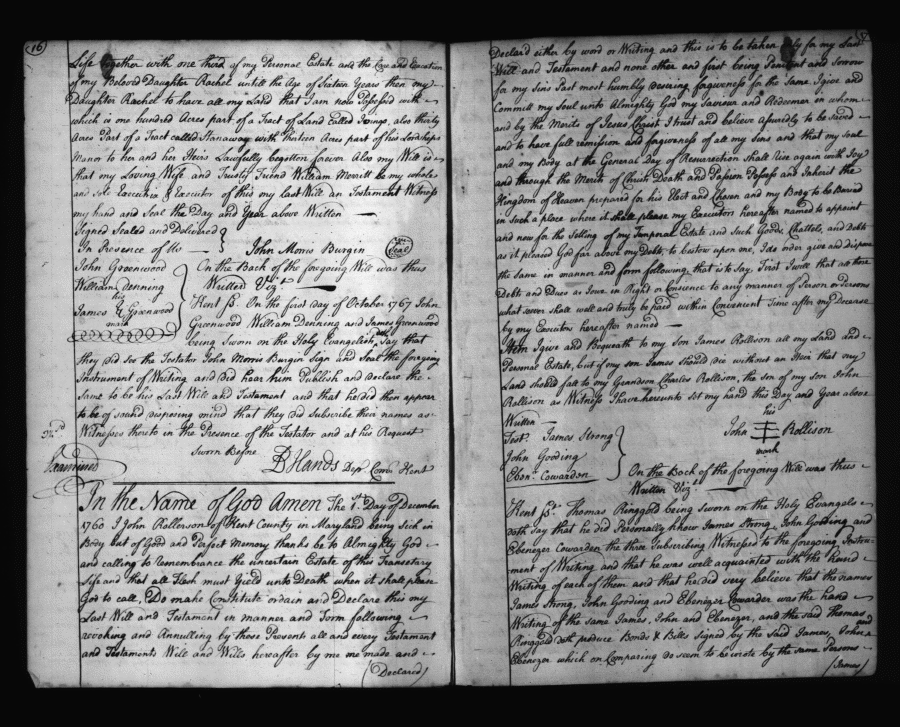 (16)
Life together with one third of my Personal Estate and the Care and Execution
of my Beloved Daughter Rachel untill the Age of Sixteen Years then my
Daughter Rachel to have all my Land that I am now Possessed with
which is one hundred Acres part of a tract of Land Called also thirty
Acres Part of a Tract called Stanaway with Thirteen Acres part of his Lordships
Manor to her and her Heirs Lawfully begotten forever Also my Will is
that my Loving Wife and Trusty Friend William Merrett be my whole
and Sole Executrix & Executor of this my last Will an Testament Witness
my hand and Seal the Day and Year above Written
Signed Sealed and Delivered
In Presence of Us John Morris Burgin Seal
John Greenwood
William Denning
his
James G Greenwood
mark
On the Back of the foregoing Will was thus
Written Vizt
Kent ss. On the first day of October 1767 John
Greenwood William Denning and James Greenwood
being Sworn on the Holy Evangelish, Say that
they did See the Testator John Morris Burgin Sign and Seal the foregoing
Instrument of Writing and did hear him Publish and Declare the
Same to be his Last Will and Testament and that he did then appear
to be of sound disposing mind that they did Subscribe their names as
Witnesses thereto in the Presence of the Testator and at his Request
Sworn Before Hands Depy Comy Kent
Examined
In the Name of God Amen The 1st Day of December
1760 I John Rollerson of Kent County in Maryland being Sick in
Body but of Good and Perfect Memory thanks be to Almighty God
and calling to Remembrance the uncertain Estate of this Transetary
Life and that all Flesh must Yield unto Death when it shall please
God to call, Do make Constitute ordain and Declare this my
Last Will and Testament in manner and Form following
revoking and Annulling by those Presents all and every Testament
and Testaments Will and Wills hereafter by me one made and
(Declared)
Declared either by word or Writing and this is to be taken only for my Last
Will and Testament and none other and first being Penitent and Sorrow
for my Sins Past most humbly desiring forgiveness for the Same I give and
Committ my Soul unto Almighty God my Saviour and Redeemer in whom
and by the Merits of Jesus Christ I trust and believe assuredly to be Saved
and to have full remission and forgiveness of all my Sins and that my Soul
and my Body at the General Day of Resurrection shall Rise again with Joy
and through the Merits of Christs Death and Passion Possess and Inherit the
Kingdom of Heaven prepared for his Elect and Chosen and my Body to be Buried
in Such a place where it shall please my Executors hereafter named to appoint
and now for the Setling of my Temporal Estate and Such Goods Chattels, and Debts
as it pleased God far above my Debts, to bestow upon me, I do order give and dispose
the Same in manner and form following, that is to Say, First I will that all those
Debts and Dues as I owe in Right or Consience to any manner of Person or Persons
what soever shall well and truly be paid within Convenient Time after my Decease
by my Executors hereafter named
Item I give and Bequeath to my Son James Rollison all my Land and
Personal Estate, but if my Son James should Die without an Heir that my
Land should fall to my Grandson Charles Rollison, the son of my Son John
Rollison as Witness I have hereunto set my hand this Day and Year above
Written
his
John Rollison
mark
Test. James Strong
John Gooding
Ebenr Cowarden
On the Back of the foregoing Will was thus
Written Vizt
Kent ss. Thomas Ringgold being Sworn on the Holy Evangels
doth Say that he did Personally know James Strong, John Gooding and
Ebenezer Cowarden the three Subscribing Witnesses to the foregoing Instru-
ment of Writing and that he was well acquainted with the hand
Writing of each of them and that he did very believe that the names
James Strong, John Gooding and Ebenezer Cowarden was the hand
Writing of the Same James, John and Ebenezer, and the said Thomas
Ringgold doth produce Bonds & Bills Signed by the Said James, John and
Ebenezer which on Comparing do seem to be wrote by the Same Persons
(James)